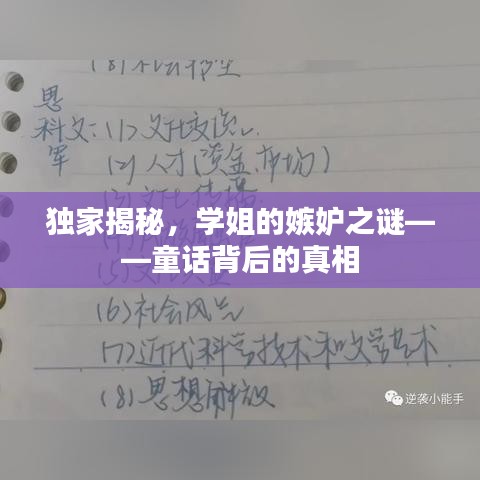 (8)社会
思
科文:(1)文化政策
军 (2)人才(资金、市场)
独家揭秘，学姐的嫉妒之谜—
—童话背后的真相
(6)社会风气
(7)近代科学技术和文学艺术
(8)思想解放
逆袭小能手